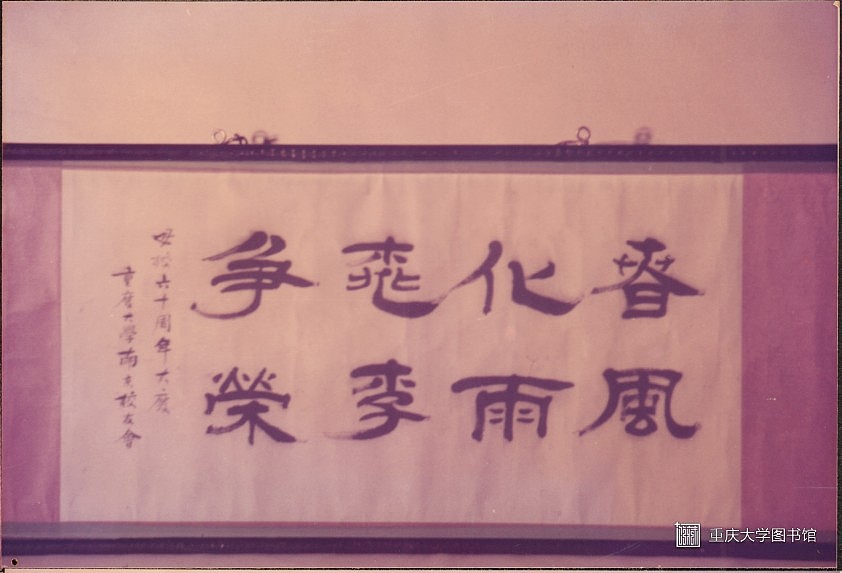 春風
化雨
桃李
爭榮
母校六十周年大慶
重慶大學南京校友會
重庆大学图书馆